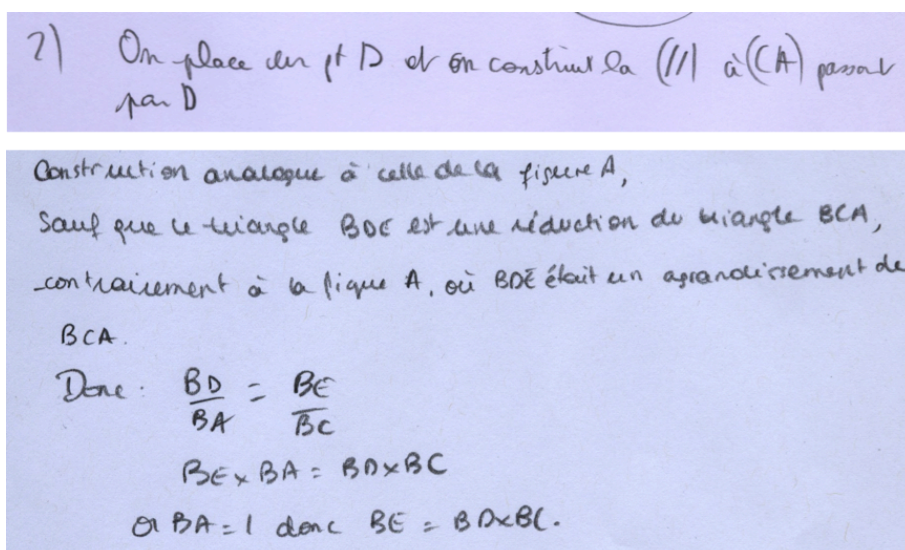 2) On place un pt D et on construit la (//) à (CA) passant
par D
Construction analogue à celle de la figure A,
Sauf que le triangle BDE est une réduction du triangle BCA,
contrairement à la figure A, où BDE était un agrandissement de
BCA.
Donc : BD/BA = BE/BC
BE x BA = BD x BC
or BA = 1 donc BE = BD x BC.